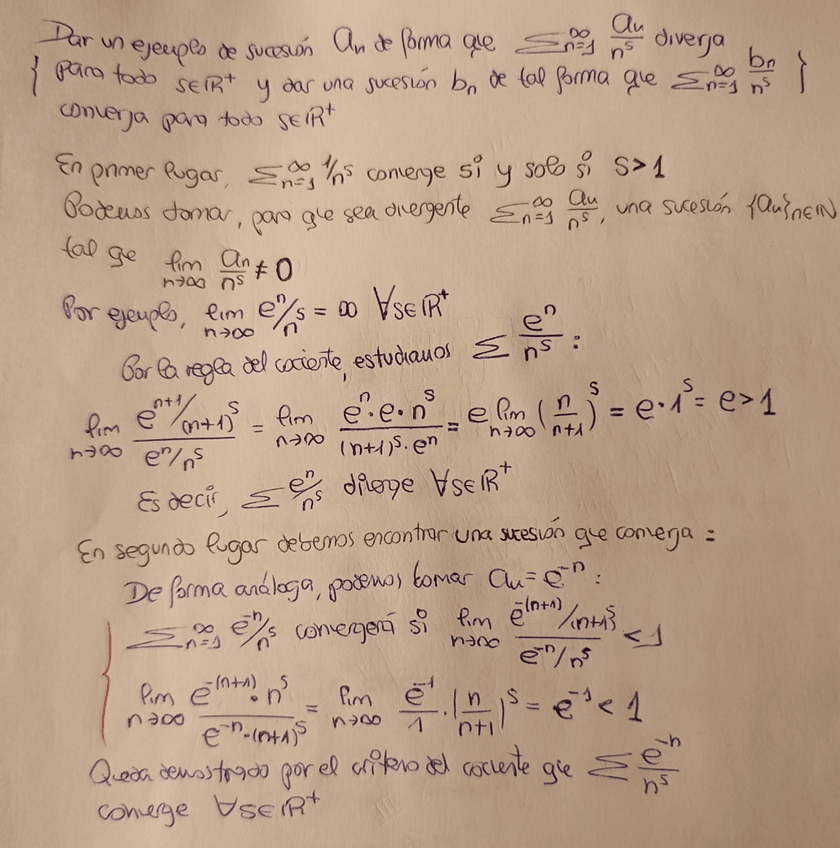 Dar un ejemplo de sucesión an de forma que ∑_{n=1}^∞ an/n^s diverja
{ para todo s∈ℝ⁺ y dar una sucesión bn de tal forma que ∑_{n=1}^∞ bn/n^s }
converja para todo s∈ℝ⁺
En primer lugar, ∑_{n=1}^∞ 1/n^s converge si y solo si s>1
Podemos tomar, para que sea divergente ∑_{n=1}^∞ an/n^s, una sucesión {an}n∈ℕ
tal qe lim_{n→∞} an/n^s ≠ 0
Por ejemplo, lim_{n→∞} e^n/n^s = ∞ ∀s∈ℝ⁺
Por la regla del cociente, estudiamos ∑ e^n/n^s :
lim_{n→∞} (e^{n+1}/(n+1)^s)/(e^n/n^s) = lim_{n→∞} (e^n·e·n^s)/((n+1)^s·e^n) = e lim_{n→∞} (n/(n+1))^s = e·1^s = e > 1
Es decir, ∑ e^n/n^s diverge ∀s∈ℝ⁺
En segundo lugar debemos encontrar una sucesión que converja :
De forma análoga, podemos tomar an = e^{-n} :
∑_{n=1}^∞ e^{-n}/n^s convergerá si lim_{n→∞} (e^{-(n+1)}/(n+1)^s)/(e^{-n}/n^s) < 1
lim_{n→∞} (e^{-(n+1)}·n^s)/(e^{-n}·(n+1)^s) = lim_{n→∞} e^{-1}/1·(n/(n+1))^s = e^{-1} < 1
Queda demostrado por el criterio del cociente qe ∑ e^{-n}/n^s
converge ∀s∈ℝ⁺